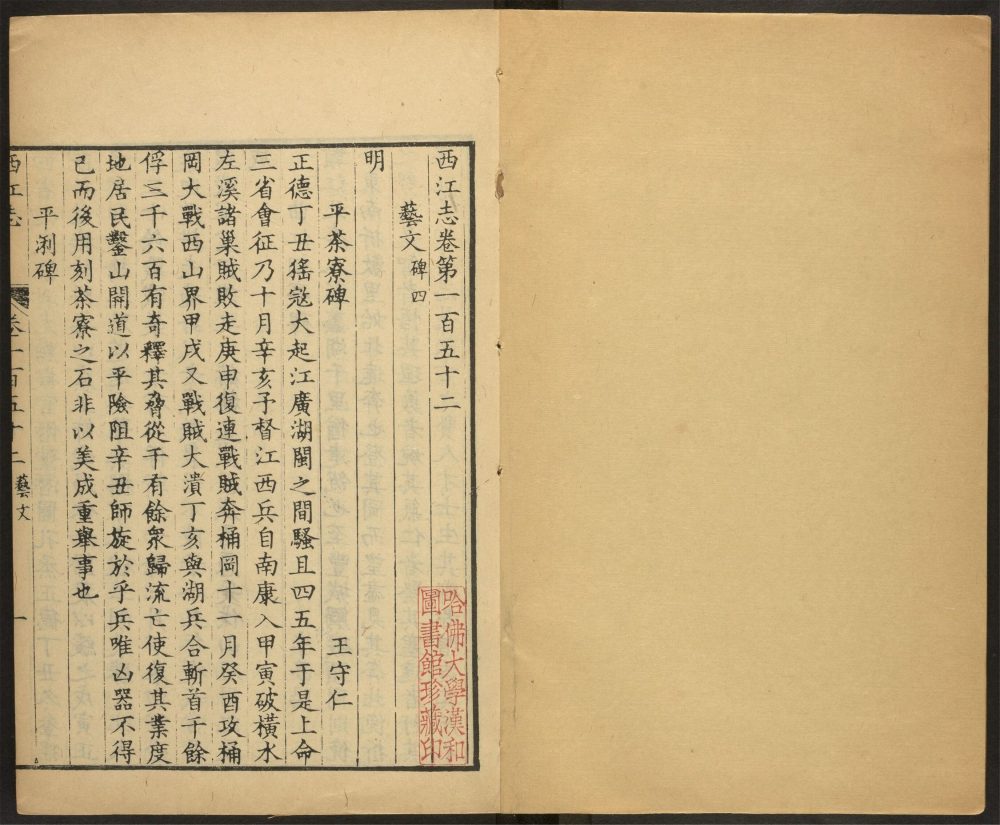 西江志卷第一百五十二
藝文 碑四
明
平茶寮碑 王守仁
正德丁丑猺寇大起江廣湖閩之間騷且四五年于是上命
三省會征乃十月辛亥予督江西兵自南康入甲寅破橫水
左溪諸巢賊敗走庚申復連戰賊奔桶岡十一月癸酉攻桶
岡大戰西山界甲戌又戰賊大潰丁亥與湖兵合斬首千餘
俘三千六百有奇釋其脅從千有餘衆歸流亡使復其業度
地居民鑿山開道以平險阻辛丑師旋於乎兵唯凶器不得
已而後用刻茶寮之石非以美成重舉事也
平浰碑
西江志 卷一百五十二 藝文 一
哈佛大學漢和
圖書館珍藏印